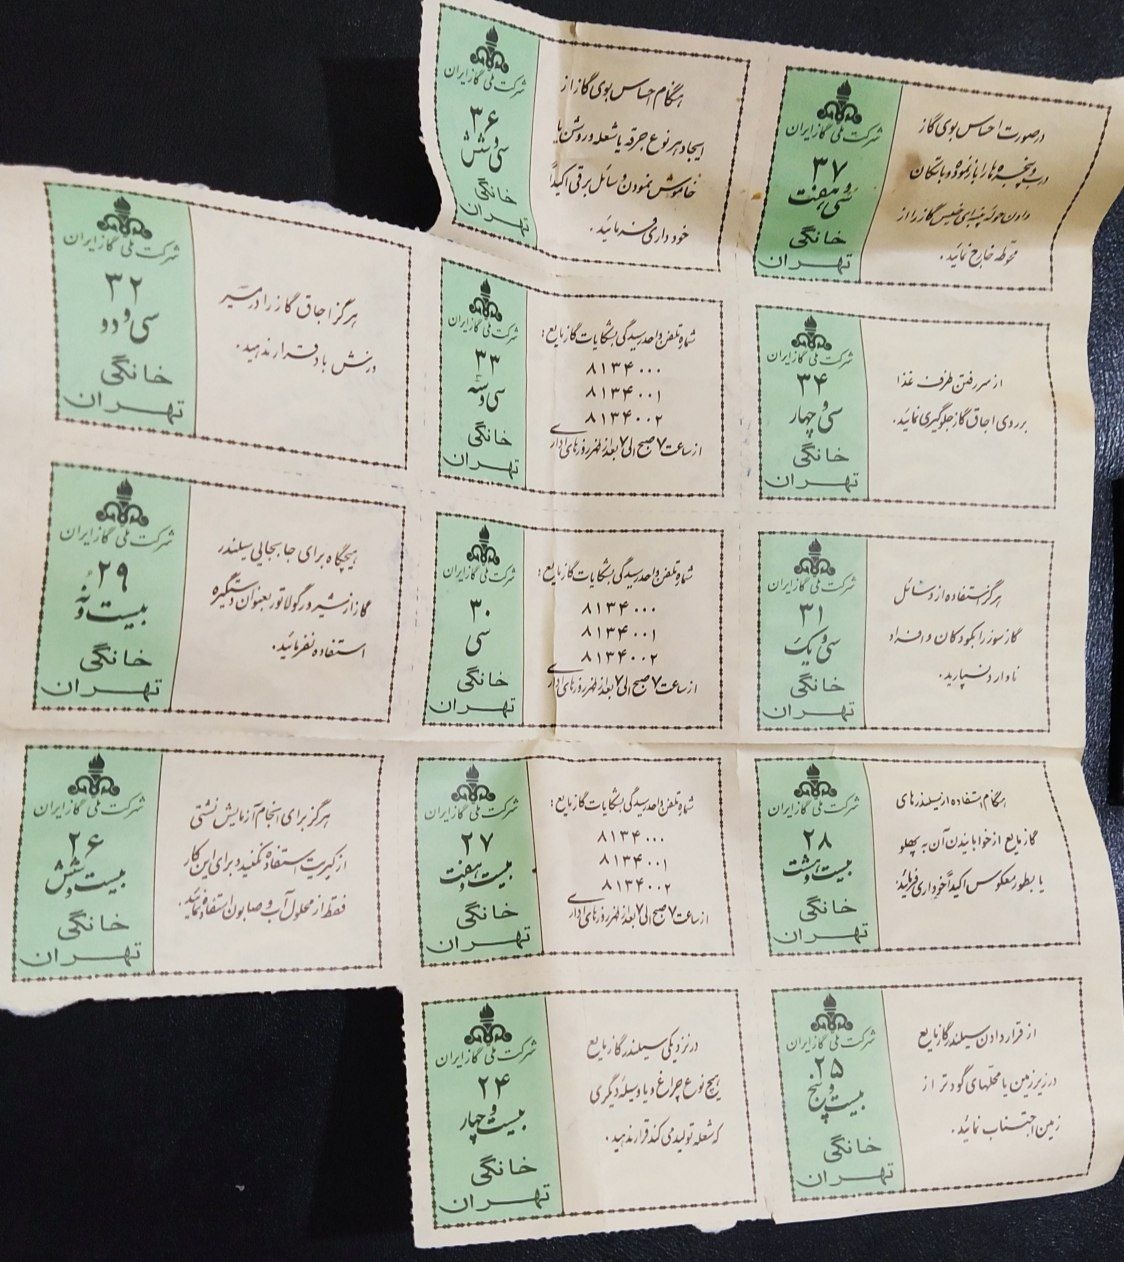 شرکت ملی گاز ایران
۳۷
سی و هفت
خانگی
تهران
درصورت احساس بوی گاز
درب و پنجره ها را باز نموده و با تکان
دادن حوله پنبه ای خیس گاز را از
محوطه خارج نمائید.
شرکت ملی گاز ایران
۳۶
سی و شش
خانگی
تهران
هنگام احساس بوی گاز از
ایجاد هر نوع جرقه یا شعله و روشن یا
خاموش نمودن وسائل برقی اکیداً
خودداری فرمائید.
شرکت ملی گاز ایران
۳۴
سی و چهار
خانگی
تهران
از سر رفتن ظرف غذا
بر روی اجاق گاز جلوگیری نمائید.
شرکت ملی گاز ایران
۳۳
سی و سه
خانگی
تهران
شماره تلفن واحد رسیدگی بشکایات گاز مایع:
۸۱۳۴۰۰۰
۸۱۳۴۰۰۱
۸۱۳۴۰۰۲
از ساعت ۷ صبح الی ۷ بعدازظهر روزهای اداری
شرکت ملی گاز ایران
۳۲
سی و دو
خانگی
تهران
هرگز اجاق گاز را در مسیر
وزش باد قرار ندهید.
شرکت ملی گاز ایران
۳۱
سی و یک
خانگی
تهران
هرگز استفاده از وسائل
گازسوز را بکودکان و افراد
ناوارد نسپارید.
شرکت ملی گاز ایران
۳۰
سی
خانگی
تهران
شماره تلفن واحد رسیدگی بشکایات گاز مایع:
۸۱۳۴۰۰۰
۸۱۳۴۰۰۱
۸۱۳۴۰۰۲
از ساعت ۷ صبح الی ۷ بعدازظهر روزهای اداری
شرکت ملی گاز ایران
۲۹
بیست و نُه
خانگی
تهران
هیچگاه برای جابجایی سیلندر
گاز از شیر و رگولاتور بعنوان دستگیره
استفاده نفرمائید.
شرکت ملی گاز ایران
۲۸
بیست و هشت
خانگی
تهران
هنگام استفاده از سیلندرهای
گاز مایع از خوابانیدن آن به پهلو
یا بطور معکوس اکیداً خودداری فرمائید.
شرکت ملی گاز ایران
۲۷
بیست و هفت
خانگی
تهران
شماره تلفن واحد رسیدگی بشکایات گاز مایع:
۸۱۳۴۰۰۰
۸۱۳۴۰۰۱
۸۱۳۴۰۰۲
از ساعت ۷ صبح الی ۷ بعدازظهر روزهای اداری
شرکت ملی گاز ایران
۲۶
بیست و شش
خانگی
تهران
هرگز برای انجام آزمایش نشتی
از کبریت استفاده نکنید و برای این کار
فقط از محلول آب و صابون استفاده نمائید.
شرکت ملی گاز ایران
۲۵
بیست و پنج
خانگی
تهران
از قرار دادن سیلندر گاز مایع
در زیرزمین یا محلهای گودتر از
زمین اجتناب نمائید.
شرکت ملی گاز ایران
۲۴
بیست و چهار
خانگی
تهران
در نزدیکی سیلندر گاز مایع
هیچ نوع چراغ و یا وسیله دیگری
که شعله تولید می کند قرار ندهید.